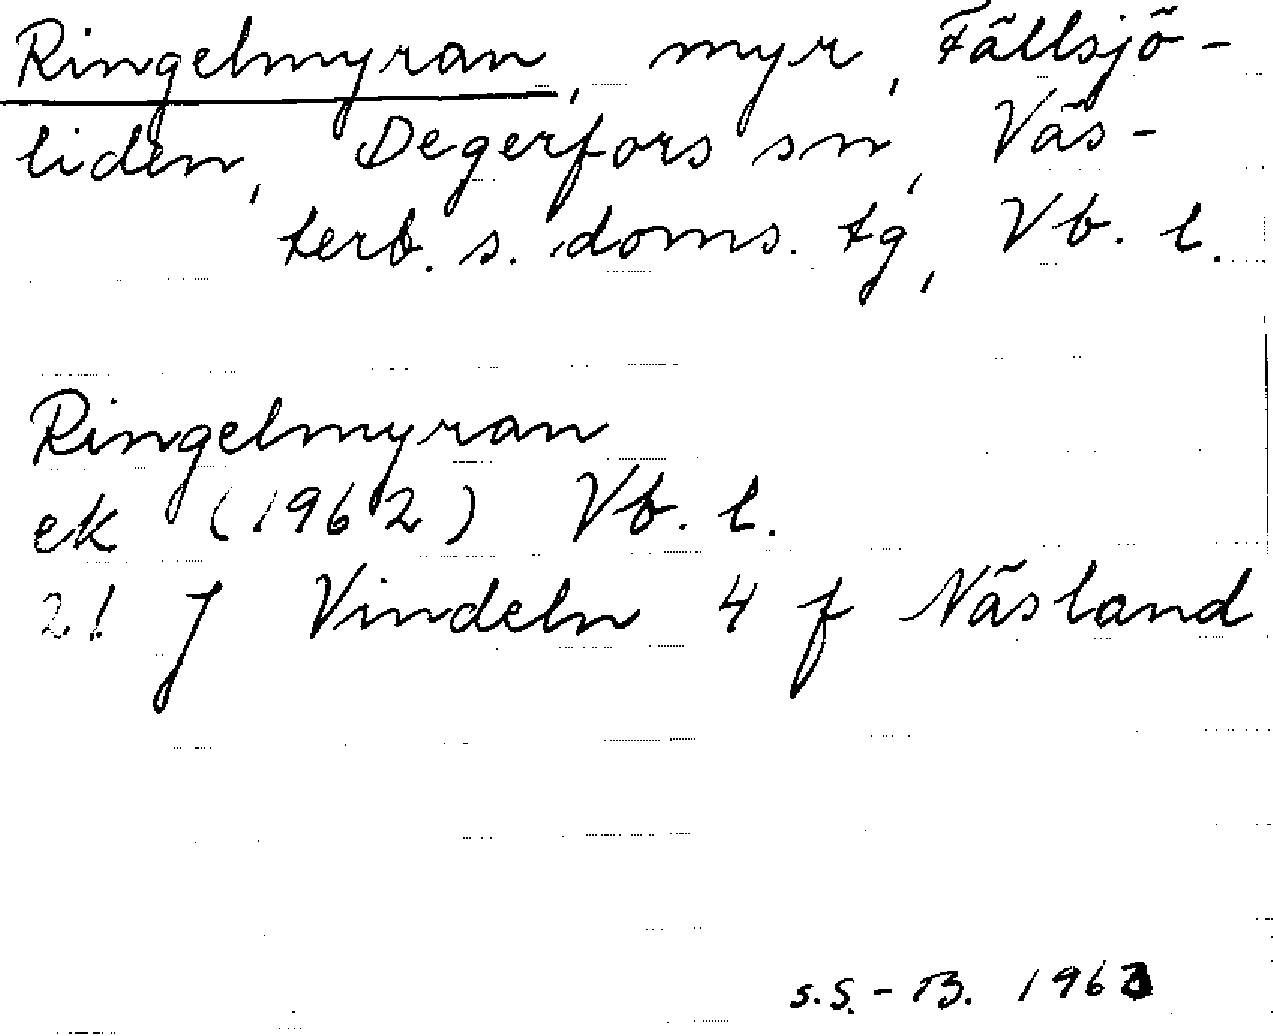 Ringelmyran, myr, Fällsjö-
liden, Degerfors sn, Väs-
terb. s. doms. tg, Vb. l.
Ringelmyran
ek (1962) Vb. l.
21 J Vindeln 4 f Näsland
s.S.-B. 1963